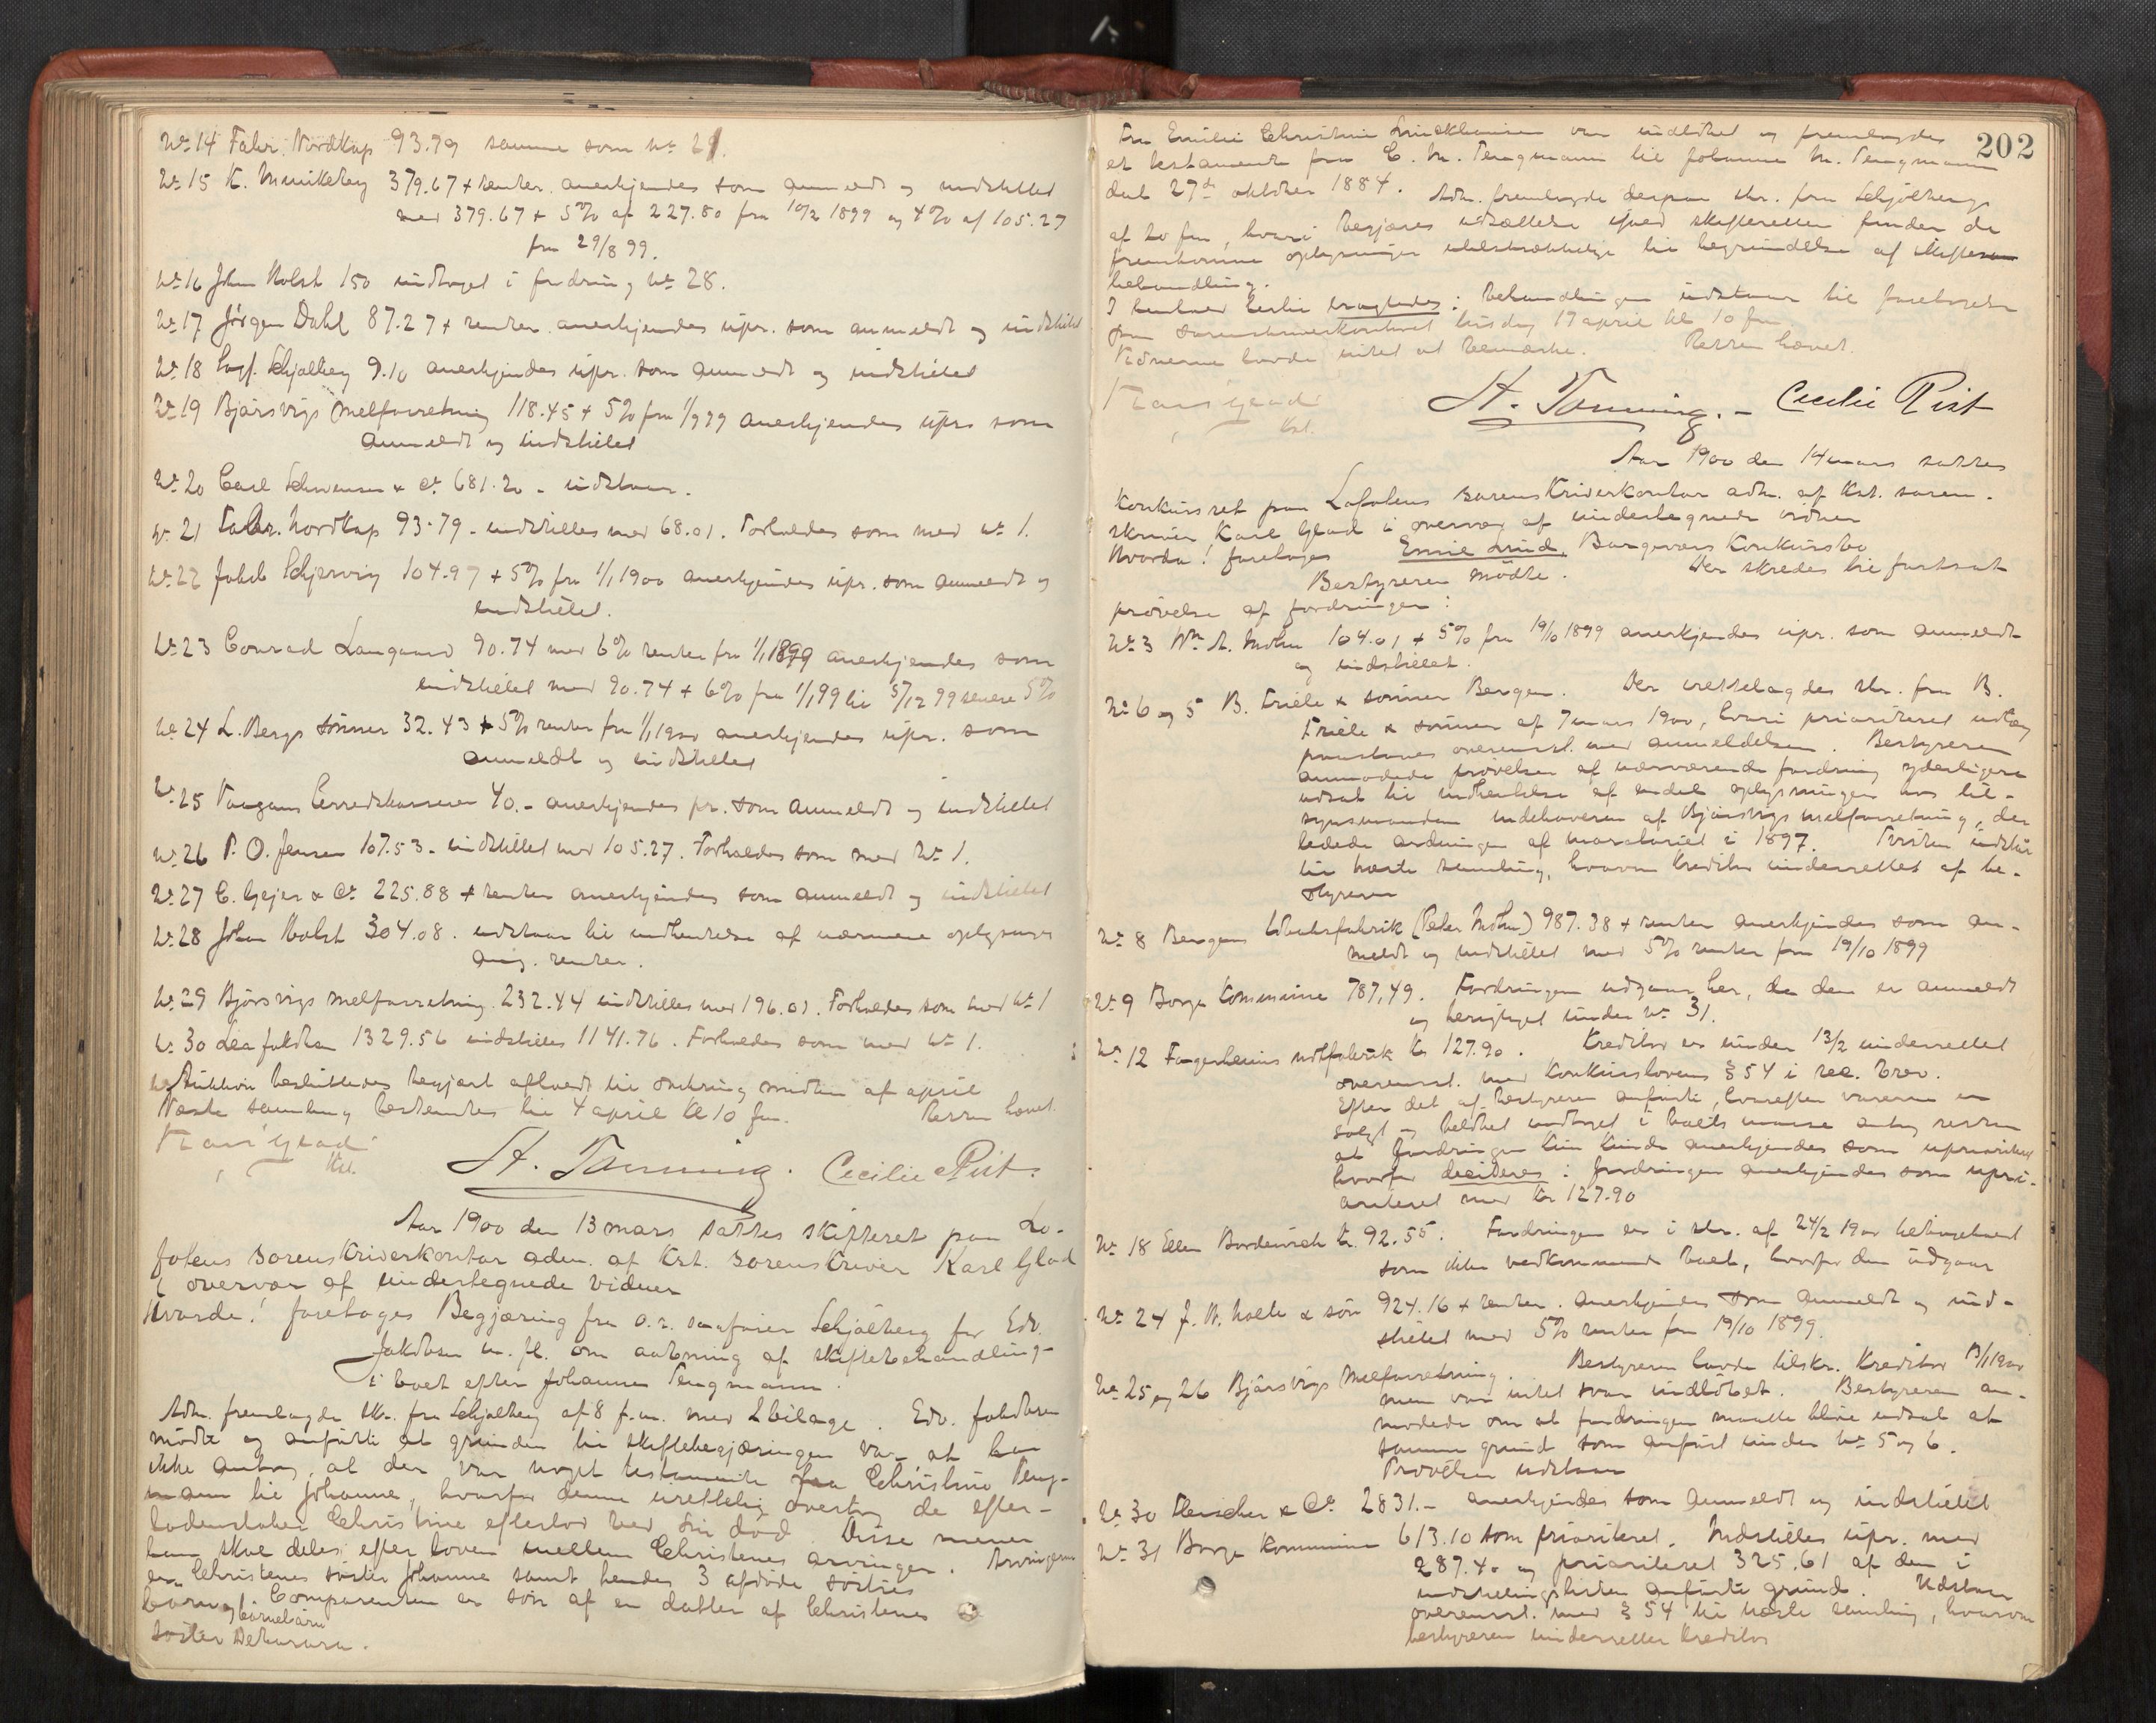 No 14 Fabr. Nordkap 93.79 samme som No 21.
No 15 K. Munkeberg 379.67 + renter. anerkjendes som anmeldt og indstillet
med 379.67 + 5% af 227.80 fra 10/2 1899 og 4% af 105.27
fra 29/8 99.
No 16 Johan Holst 150 indtaget i fordring No 28.
No 17 Jörgen Dahl 87.27 + renter. anerkjendes upr. som anmeldt og indstillet
No 18 Sagf. Schjølberg 9.10 anerkjendes upr. som anmeldt og indstillet
No 19 Bjørsvigs Melforretning 118.45 + 5% fra 1/9 99 anerkjendes upr. som
anmeldt og indstillet
No 20 Carl Schwensen & Co. 681.20 - udstaar.
No 21 Fabr. Nordkap 93.79 - indstilles med 68.01. Forholdes som med No 1.
No 22 Jakob Schjervig 104.97 + 5% fra 1/1 1900 anerkjendes upr. som anmeldt og
indstillet.
No 23 Conrad Langaard 90.74 med 6% renter fra 1/1 1899 anerkjendes som
indstillet med 90.74 + 6% fra 1/1 99 til 5/12 99 senere 5%
No 24 L. Bergs Sønner 32.43 + 5% renter fra 1/1 1900 anerkjendes upr. som
anmeldt og indstillet
No 25 Vaagans Herredskasserer 40.- anerkjendes pr. som anmeldt og indstillet
No 26 P. O. Jensen 107.53 - indstillet med 105.27. Forholdes som med No 1.
No 27 C. Geijer & Co. 225.88 + renter anerkjendes som anmeldt og indstillet
No 28 Johan Holst 304.08. udstaar til indhentelse af nærmere oplysninger
ang. renter.
No 29 Bjørsvigs Melforretning 232.44 indstilles med 196.01. Forholdes som med No 1
No 30 Lea Jakobsen 1329.56 indstilles 1141.76. Forholdes som med No 1.
Auktion besluttedes begjært afholdt til omkring midten af april
Næste samling bestemtes til 4 april kl 10 fm. Retten hævet.
Karl Glad
Kst.
H. Tønning. Cecilie Rist.
Aar 1900 den 13 mars sattes skifteret paa Lo-
fotens Sorenskriverkontor adm. af Kst. sorenskriver Karl Glad
i overvær af undertegnede vidner
Hvorda! foretoges Begjæring fra o.r. sagfører Schjølberg for Edv.
Jakobsen m. fl. om aabning af skiftebehandling
i boet efter Johanne Tengmann.
Adm. fremlagde skr. fra Schjølberg af 8 f.m. med 1 bilage. Edv. Jakobsen
mødte og anførte at grunden til skiftebegjæringen var, at han
ikke antog, at der var noget testamente fra Christine Teng-
mann til Johanne, hvorfor denne urettelig overtog de efter-
ladenskaber Christine efterlod ved sin død. Disse mener
han skal deles efter loven mellem Christines arvinger. Arvingerne
er Christines søster Johanne samt hendes 3 afdøde søstres
børn og børnebørn. Comparenten er søn af en datter af Christines
søster Dekurara.
202
Fra Emilie Christine Linckhausen var indløbet og fremlagdes
et testamente fra C. M. Tengmann til Johanne M. Tengmann
dat 27de oktober 1884. Adm. fremlagde derpaa skr. fra Schjølberg
af 20 fm, hvori begjæres udsættelse ifald skifteretten finder de
fremkomne oplysninger utilstrækkelige til begrundelse af skifte
behandling.
I henhold hertil eragtedes: Behandlingen udstaar til foretagelse
paa Sorenskriverkontoret tirsdag 17 april kl 10 fm
Vidnerne havde intet at bemærke. Retten hævet.
Karl Glad
Kst.
H. Tønning. - Cecilie Rist
Aar 1900 den 14 mars sattes
konkursret paa Lofotens Sorenskriverkontor adm. af Kst. soren-
skriver Karl Glad i overvær af undertegnede vidner
Hvorda! foretoges Emil Lund, Borgeværs Konkursbo
Bestyreren mødte. Der skredes til fortsat
prøvelse af fordringer:
No 3 Wm A. Mohn 104.01 + 5% fra 19/10 1899 anerkjendes upr. som anmeldt
og indstillet.
No 6 og 5 B. Friele & sønner Bergen. Der irettelagdes skr. fra B.
Friele & sønner af 7 mars 1900, hvori prioriteret udlæg
paastaaes overensst. med anmeldelsen. Bestyreren
anmodede prøvelsen af nærværende fordring yderligere
udsat til indhentelse af endel oplysninger hos til-
synsmanden indehaveren af Bjørsvigs melforretning, der
ledede ordningen af moratoriet i 1897. Tvisten udstaar
til næste samling, hvorom kreditor underrettet af be-
styreren
No 8 Bergens Tobaksfabrik (Peter Mohn) 987.38 + renter anerkjendes som an-
meldt og indstillet med 5% renter fra 19/10 1899
No 9 Borge Kommune 787,49. Fordringen udgaar her, da den er anmeldt
og berigtiget under No 31.
No 12 Fagerheims notfabrik kr 127.90. Kreditor er under 13/2 underrettet
overensst. med konkurslovens § 54 i rec. brev.
Efter det af bestyreren anførte, hvorefter varerne er
solgt og beløbet indtaget i boets masse antog retten
at fordringen kun kunde anerkjendes som uprioriteret
hvorfor decideres: fordringen anerkjendes som upri-
oriteret med kr 127.90
No 18 Ellen Bordewich kr 92.55. Fordringen er i skr. af 24/2 1900 betegnet
som ikke vedkommende boet, hvorfor den udgaar
No 24 J. N. Holte & søn 924.16 + renter. anerkjendes som anmeldt og ind-
stillet med 5% renter fra 19/10 1899.
No 25 og 26 Bjørsvigs Melforretning. Bestyreren havde tilskr. kreditor 13/1 1900
men var intet svar indløbet. Bestyreren an-
modede om at fordringen maatte blive udsat af
samme grund som anført under No 5 og 6.
Prøvelsen udstaar
No 30 Fleischer & Co. 2831.- anerkjendes som anmeldt og indstillet
No 31 Borge Kommune 613.10 som prioriteret. Indstilles upr. med
287.40 og prioriteret 325.61 af den i
indstillingslisten anførte grund. Udstaar
overensst. med § 54 til næste samling, hvorom
bestyreren underretter kreditor